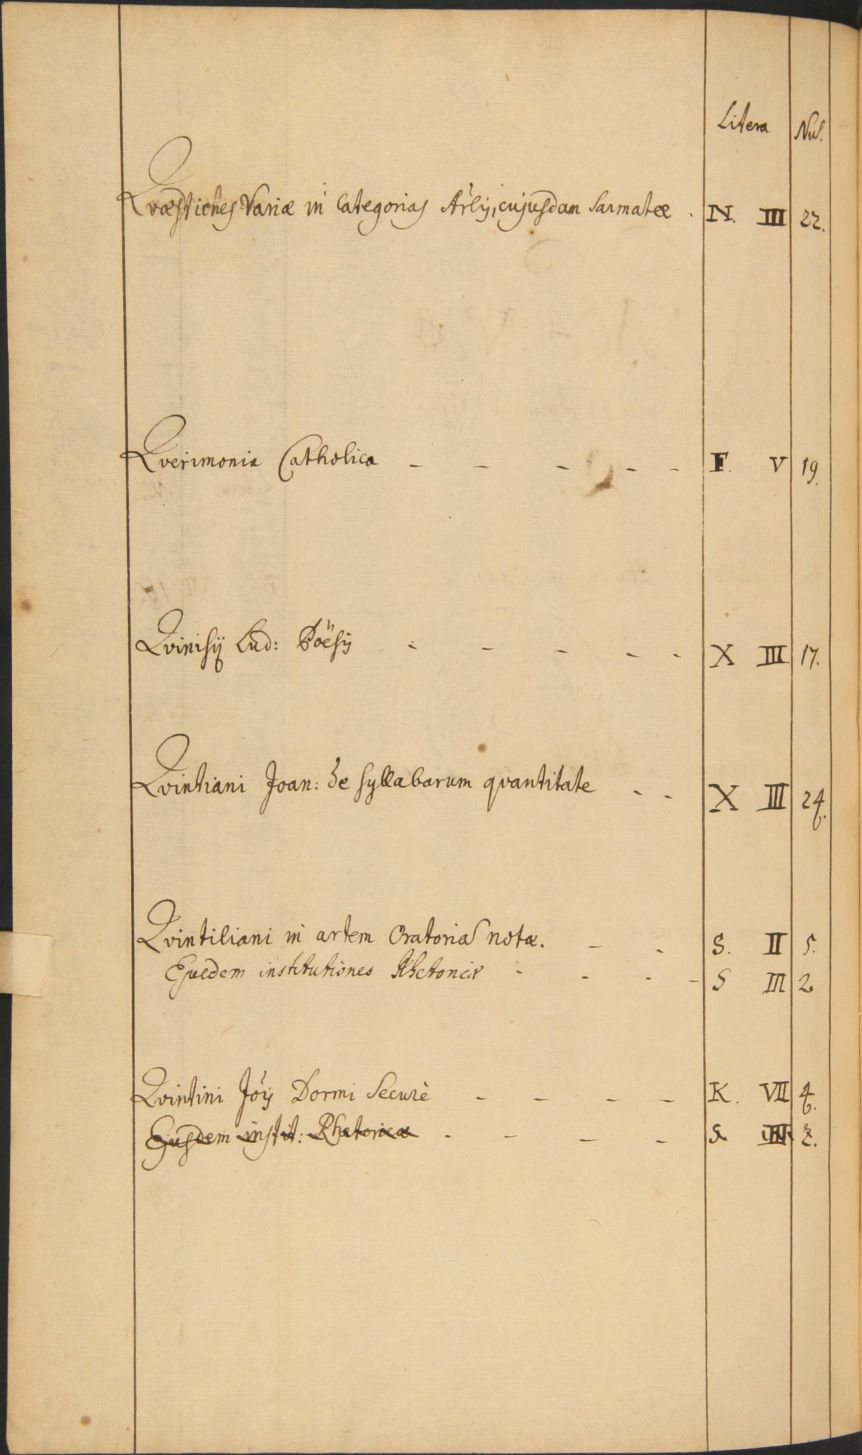 Litera Nus.
Qvæstiones Variæ in Categorias Arlij, cujusdam Sarmatæ . N. III 22.
Qverimonia Catholica - - - - - F. V 19.
Qvinisij Lud: Poësij - - - - - X III 17.
Qvintiani Joan: de syllabarum qvantitate - - X III 24.
Qvintiliani in artem Oratoria notæ. - - S. II 5.
Ejusdem institutiones Rhetoricæ - - - - S III 2
Qvintini Jōij Dormi Securè - - - - K. VII 4.
Ejusdem instit: Rhetoricæ - - - - S III 2.